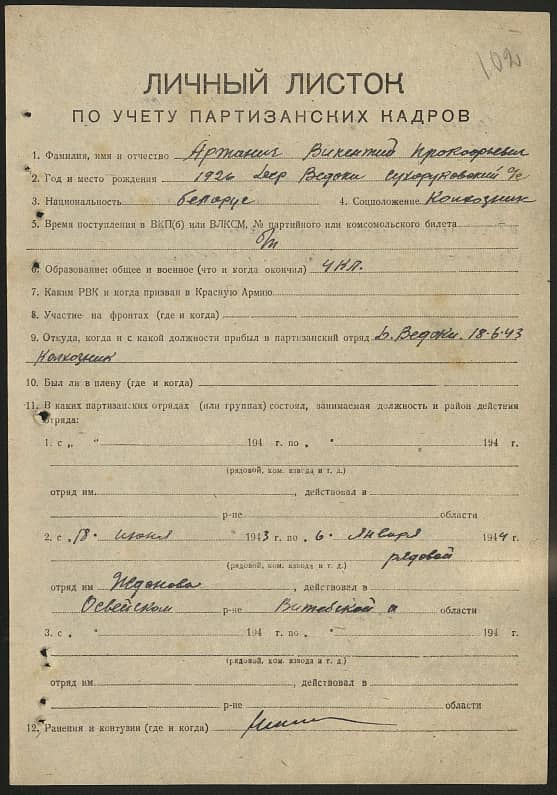 102
ЛИЧНЫЙ ЛИСТОК
ПО УЧЕТУ ПАРТИЗАНСКИХ КАДРОВ
1. Фамилия, имя и отчество Прокофьевич
2. Год и место рождения 1926 Ведоки
3. Национальность беларус 4. Соцположение Колхозник
5. Время поступления в ВКП(б) или ВЛКСМ, № партийного или комсомольского билета
б/п
6. Образование: общее и военное (что и когда окончил) 4 кл.
7. Каким РВК и когда призван в Красную Армию
8. Участие на фронтах (где и когда)
9. Откуда, когда и с какой должности прибыл в партизанский отряд д. Ведоки. 18-6-43
Колхозник
10. Был ли в плену (где и когда)
11. В каких партизанских отрядах (или группах) состоял, занимаемая должность и район действия
отряда:
1. с „ “ 194 г. по „ “ 194 г.
(рядовой, ком. взвода и т. д.)
отряд им. , действовал в
р-не области
2. с „18. июня 1943 г. по „6. Января 1944 г.
(рядовой, ком. взвода и т. д.) рядовой
отряд им Жданова , действовал в
Освейском р-не Витебской области
3. с „ “ 194 г. по „ “ 194 г.
(рядовой, ком. взвода и т. д.)
отряд им. , действовал в
р-не области
12. Ранения и контузии (где и когда)